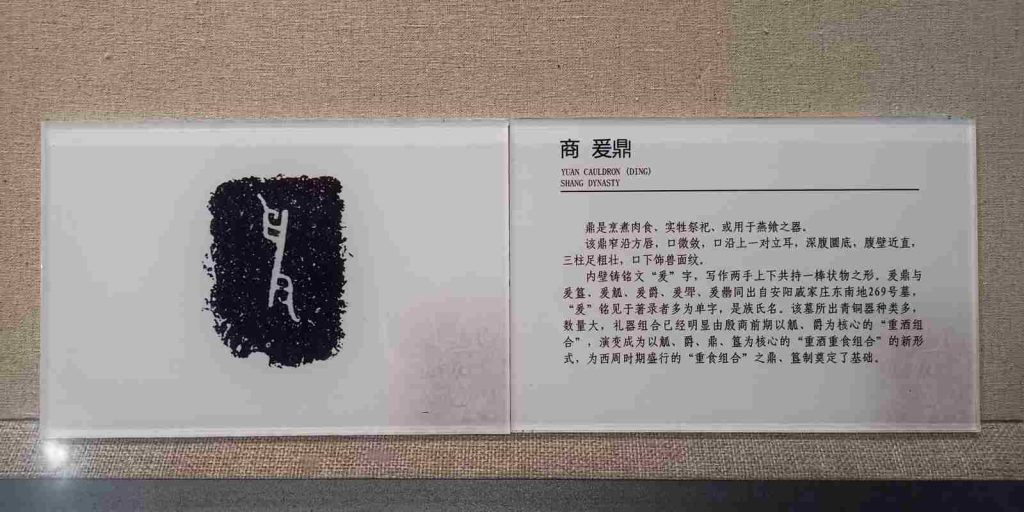 商 爰鼎
YUAN CAULDRON (DING)
SHANG DYNASTY
鼎是烹煮肉食、实牲祭祀、或用于燕飨之器。
该鼎窄沿方唇，口微敛，口沿上一对立耳，深腹圜底，腹壁近直，
三柱足粗壮，口下饰兽面纹。
内壁铸铭文“爰”字，写作两手上下共持一棒状物之形。爰鼎与
爰簋、爰觚、爰爵、爰斝、爰同出自安阳戚家庄东南地269号墓，
“爰”铭见于著录者多为单字，是族氏名。该墓所出青铜器种类多，
数量大，礼器组合已经明显由殷商前期以觚、爵为核心的“重酒组
合”，演变成为以觚、爵、鼎、簋为核心的“重酒重食组合”的新形
式，为西周时期盛行的“重食组合”之鼎、簋制奠定了基础。